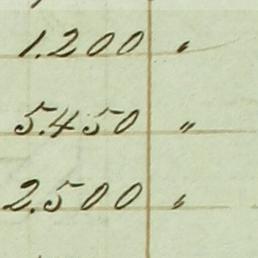 1.200 "
5.450 "
2.500 "